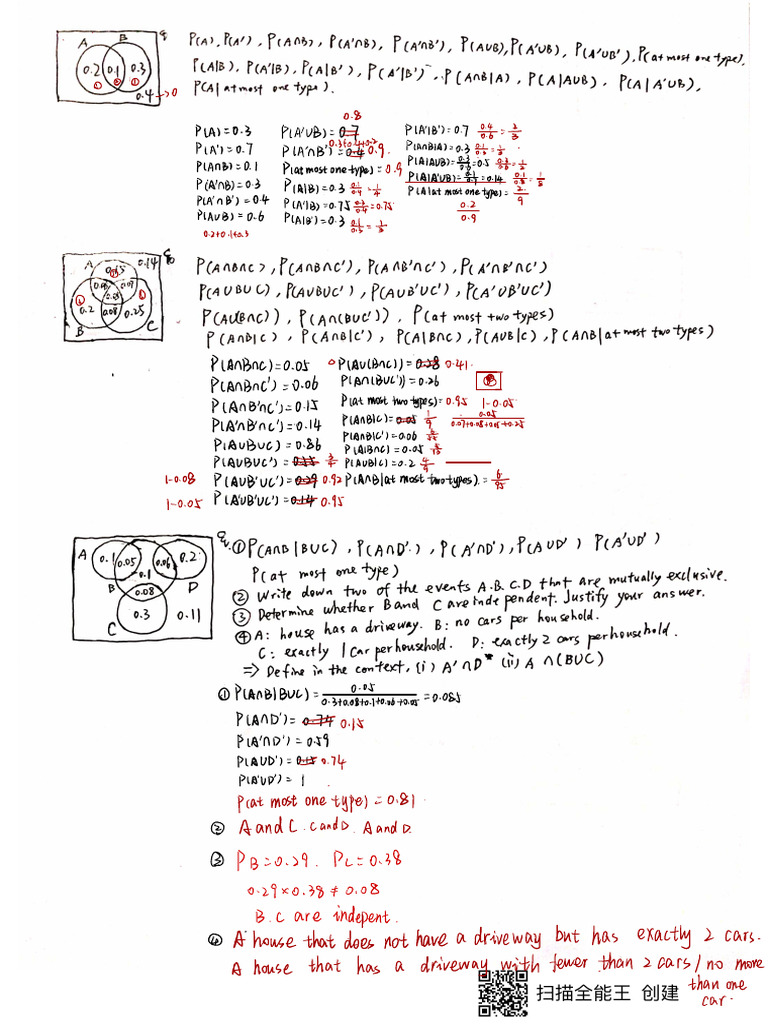 P(A), P(A'), P(A∩B), P(A'∩B), P(A'∩B'), P(A∪B), P(A'∪B), P(A'∪B'), P(at most one type),
A B 0.2 0.1 0.3 0.4 →0
P(A|B), P(A'|B), P(A|B'), P(A'|B'), P(A∩B|A), P(A|A∪B), P(A|A'∪B),
P(A|at most one type).
0.8
P(A)=0.3 P(A'∪B)=0.7 P(A'|B')=0.7 0.4/0.6=2/3
P(A')=0.7 P(A'∩B')=0.4 0.3+0.4+0.2 0.9 P(A∩B|A)=0.3 0.1/0.3=1/3
P(A∩B)=0.1 P(at most one type)=0.9 P(A|A∪B)=0.3/0.6=0.5 0.3/0.6=1/2
P(A'∩B)=0.3 P(A|B)=0.3 0.1/0.4=1/4 P(A|A'∪B)=0.1/0.7=0.14 0.1/0.8=1/8
P(A'∩B')=0.4 P(A'|B)=0.75 0.3/0.4=0.75 P(A|at most one type)=2/9
P(A∪B)=0.6 P(A|B')=0.3 0.1/0.3=1/3 0.2/0.9
0.2+0.1+0.3
A B C 0.15 0.14 0.06 0.07 0.05 0.2 0.08 0.25
P(A∩B∩C), P(A∩B∩C'), P(A∩B'∩C'), P(A'∩B'∩C')
P(A∪B∪C), P(A∪B∪C'), P(A∪B'∪C'), P(A'∪B'∪C')
P(A∪(B∩C)), P(A∩(B∪C')), P(at most two types)
P(A∩B|C), P(A∩B|C'), P(A|B∩C), P(A∪B|C), P(A∩B|at most two types)
P(A∩B∩C)=0.05 P(A∪(B∩C))=0.38 0.41
P(A∩B∩C')=0.06 P(A∩(B∪C'))=0.26
P(A∩B'∩C')=0.15 P(at most two types)=0.95 1-0.05
P(A'∩B'∩C')=0.14 P(A∩B|C)=0.05 1/9 0.05/0.07+0.08+0.05+0.25
P(A∪B∪C)=0.86 P(A∩B|C')=0.06
P(A∪B∪C')=0.55 P(A|B∩C)=0.05 5/13
1-0.08 P(A∪B'∪C')=0.29 0.92 P(A∪B|C)=0.2 4/9
P(A∩B|at most two types)=6/95
1-0.05 P(A'∪B'∪C')=0.14 0.95
A B C D 0.1 0.05 0.1 0.06 0.2 0.08 0.3 0.11
① P(A∩B|B∪C), P(A∩D'), P(A'∩D'), P(A∪D') P(A'∪D')
P(at most one type)
② Write down two of the events A.B.C.D that are mutually exclusive.
③ Determine whether B and C are independent. Justify your answer.
④ A: house has a driveway. B: no cars per household.
C: exactly 1 car per household. D: exactly 2 cars per household.
⇒ Define in the context, (i) A'∩D (ii) A∩(B∪C)
① P(A∩B|B∪C)=0.05/0.3+0.08+0.1+0.06+0.05=0.085
P(A∩D')=0.74 0.15
P(A'∩D')=0.59
P(A∪D')=0.15 0.74
P(A'∪D')=1
P(at most one type)=0.81
② A and C. C and D. A and D.
③ PB=0.29. PC=0.38
0.29×0.38≠0.08
B.C are indepent.
④ A house that does not have a driveway but has exactly 2 cars.
A house that has a driveway with fewer than 2 cars/no more
than one
car.
扫描全能王 创建